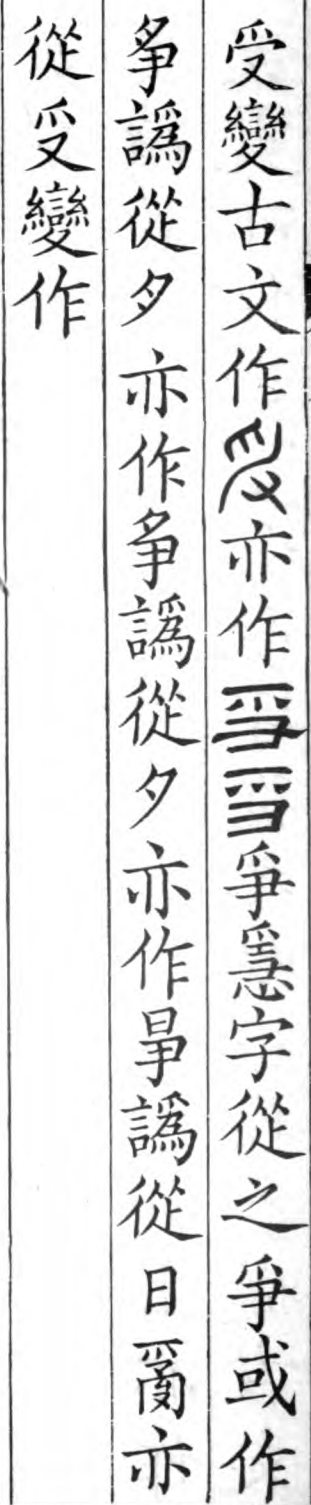 受變古文作亦作爭㥯字從之爭或作
争譌從夕亦作争譌從夕亦作譌從日𤔔亦
從爭變作